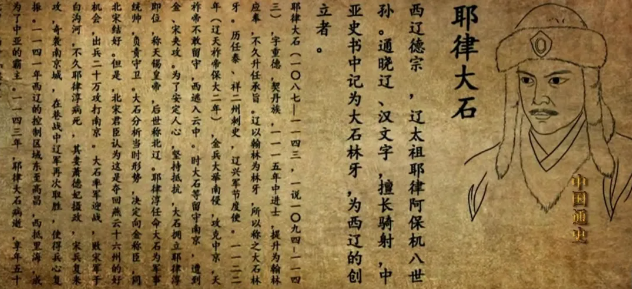 耶律大石
西辽德宗，辽太祖耶律阿保机八世
孙。通晓辽、汉文字，擅长骑射，中
亚史书中记为大石林牙，为西辽的创
立者。
耶律大石（一〇八七—一一四三，一说一〇九四—一一四
三）字重德，契丹族，一一一五年中进士，提升为翰林
应奉，不久升任承旨。辽以翰林为林牙，所以称之大石林
牙。历任泰、祥二州刺史，辽兴军节度使。一一二二
年（辽天祚帝保大二年），金兵大举南侵，攻克中京，天
祚帝不敢留守，西逃入云中。时大石等留守南京，遭到
金、宋夹攻，为了安定人心，坚持抵抗，大石拥立耶律淳
即位，称天锡皇帝，后世称北辽。耶律淳任命大石为军事
统帅，负责守卫。大石分析当时形势，决定向金称臣，同
北宋结好。但是，北宋君臣认为这是夺回燕云十六州的好
机会，出兵二十万攻打南京。大石率军迎战，败宋军于
白沟河，不久耶律淳病死，其妻萧德妃摄政，宋兵复来
攻，奇袭南京城，在巷战中辽军再次取胜，使得兵心复
振。一一四一年西辽的控制区域东至高昌，西抵里海，成
为了中亚的霸主。一一四三年，耶律大石病逝，享年五十
中国通史